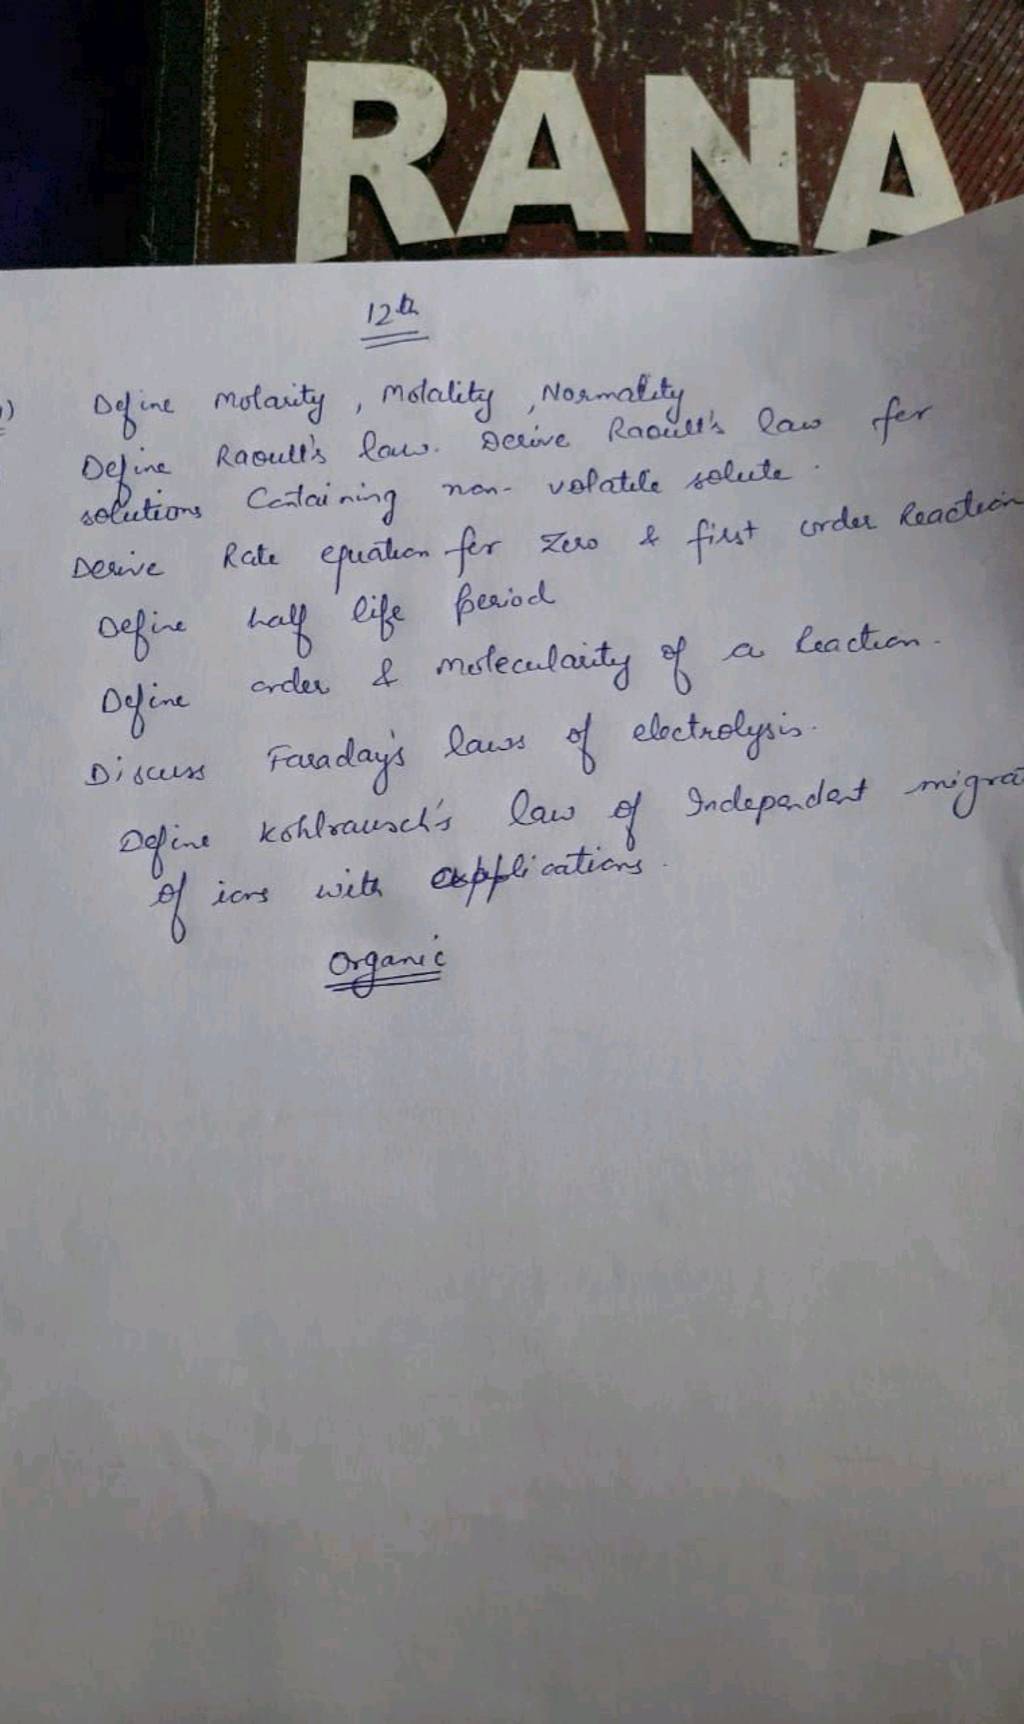 RANA
12th
Define Molarity, Molality, Normality
Define Raoult's law. Derive Raoult's law for
solutions Containing non-volatile solute.
Derive Rate equation for Zero & first order Reaction
Define half life period
Define order & Molecularity of a Reaction.
Discuss Faraday's laws of electrolysis.
Define Kohlrausch's law of Independent migra
of ions with applications.
Organic